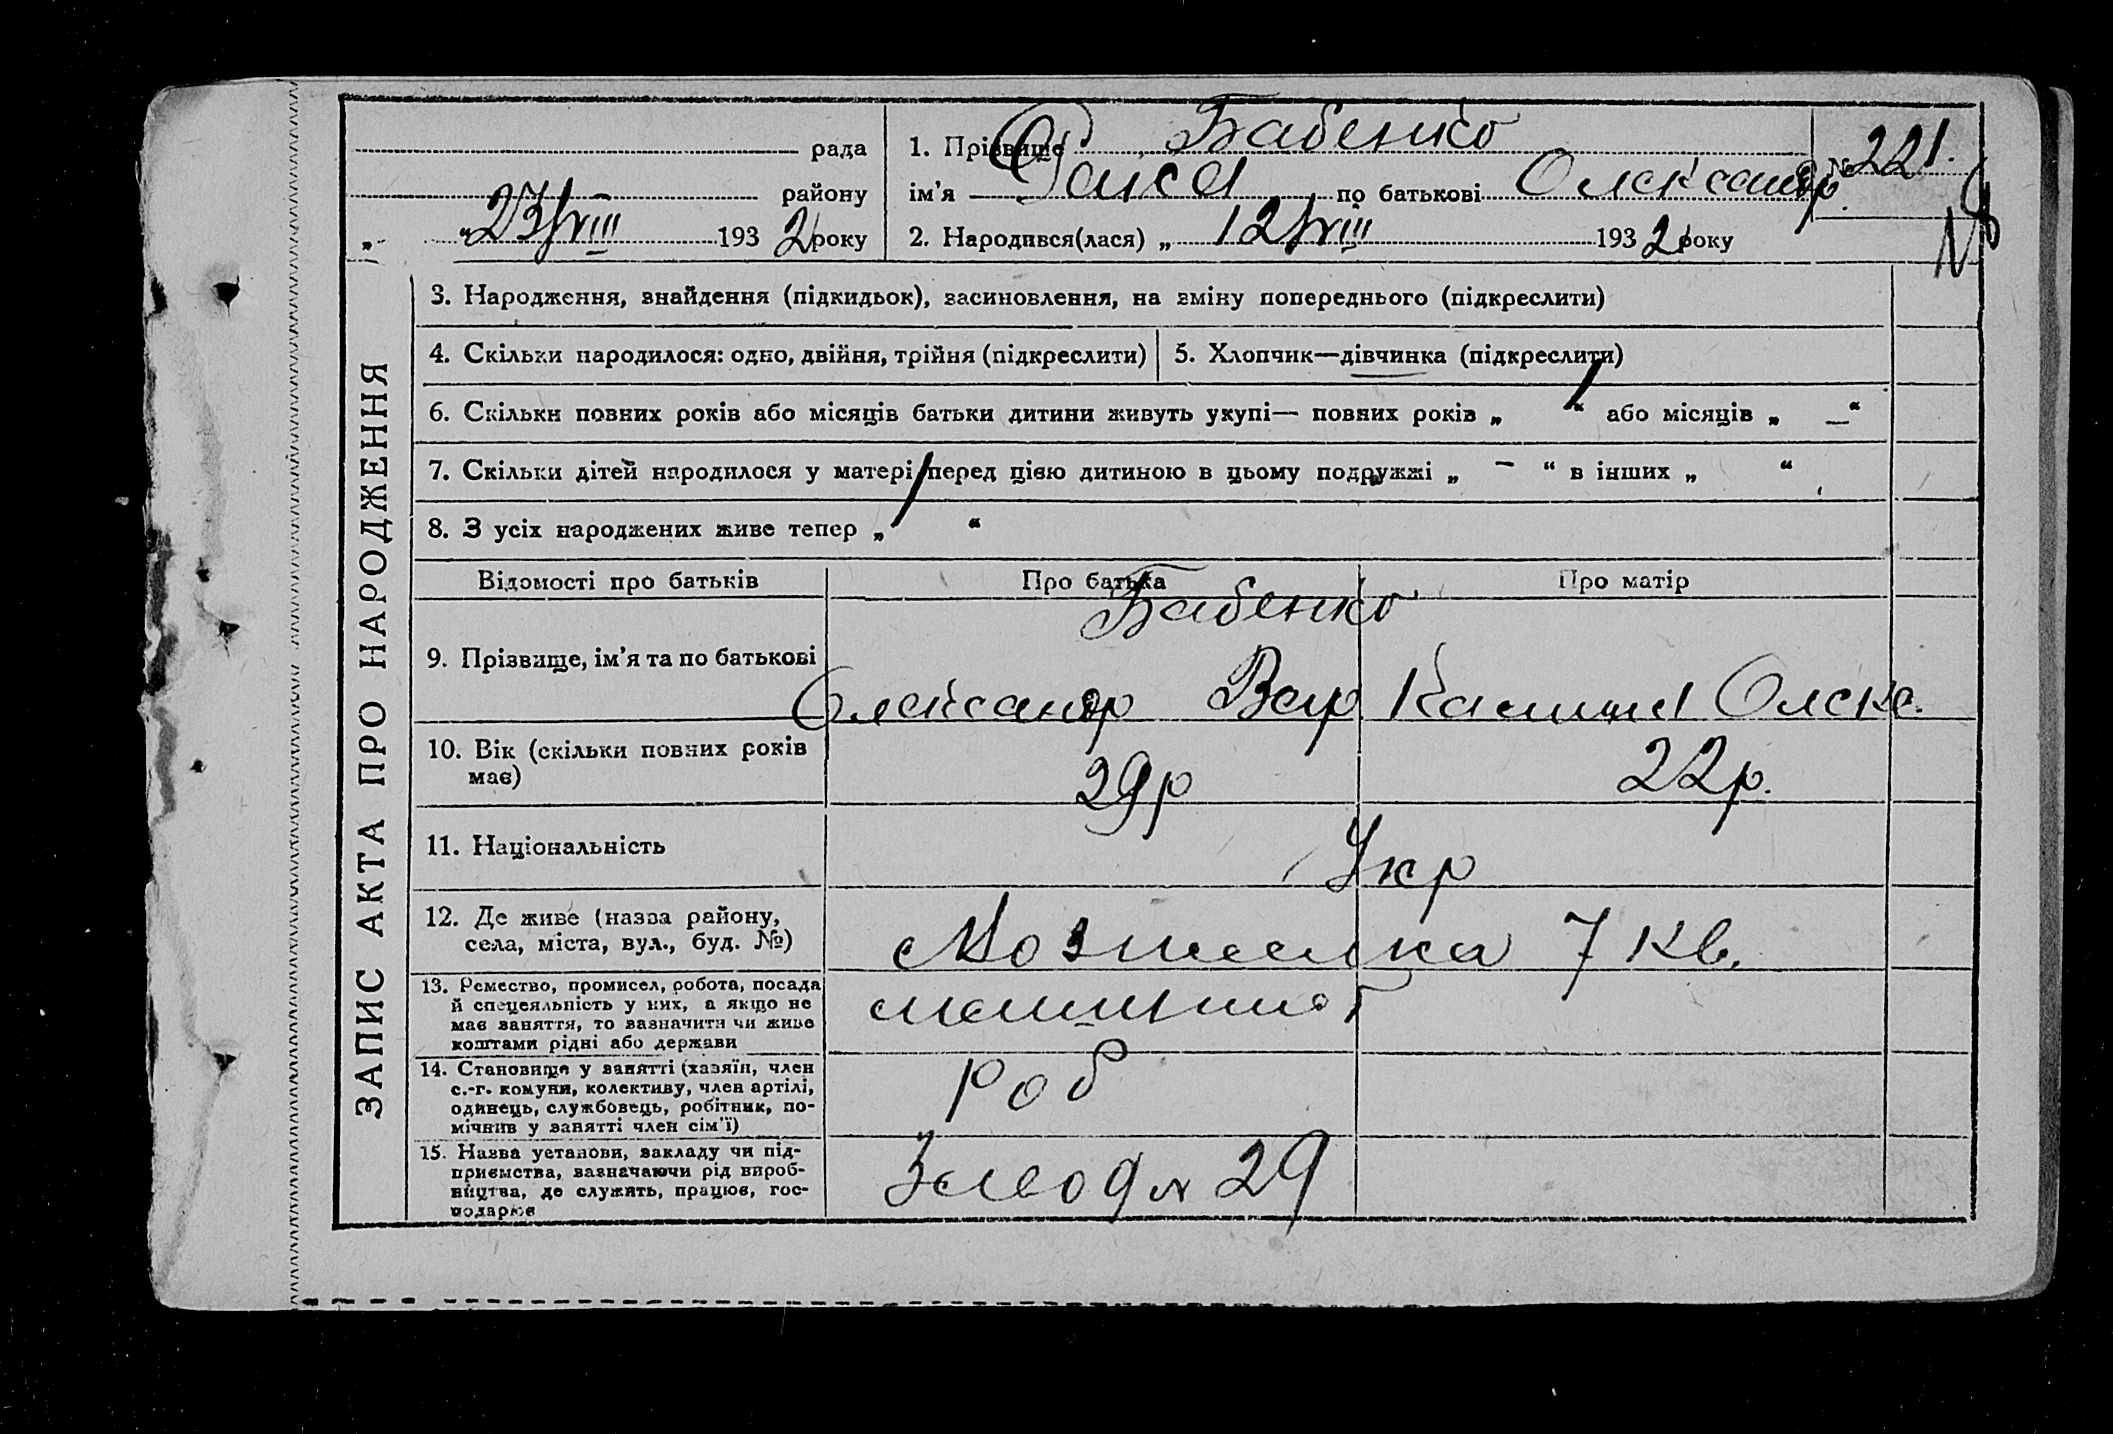 рада 1. Прізвище Бабенко № 221.
району ім'я Раиса по батькові Олександр.
„ “23/VIII 1932 року 2. Народився(лася) „ 12/VIII 1932 року
ЗАПИС АКТА ПРО НАРОДЖЕННЯ
3. Народження, знайдення (підкидьок), засиновлення, на зміну попереднього (підкреслити)
4. Скільки народилося: одно, двійня, трійня (підкреслити) 5. Хлопчик—дівчинка (підкреслити)
6. Скільки повних років або місяців батьки дитини живуть укупі— повних років „ 1 “ або місяців „ — “
7. Скільки дітей народилося у матері перед цією дитиною в цьому подружжі „ — “ в інших „ “
8. З усіх народжених живе тепер „ 1 “
Відомості про батьків Про батька Про матір
Бабенко
9. Прізвище, ім'я та по батькові
Олександр Олекс.
10. Вік (скільки повних років має) 29р 22р.
11. Національність Укр
12. Де живе (назва району,
села, міста, вул., буд. №) 7 кв.
13. Ремество, промисел, робота, посада
й спеціяльність у них, а якщо не
має заняття, то зазначити чи живе
коштами рідні або держави
машинист
14. Становище у занятті (хазяїн, член
с.-г. комуни, колективу, член артілі,
одинець, службовець, робітник, по-
мічник у занятті член сім'ї)
Роб
15. Назва установи, закладу чи під-
приємства, зазначаючи рід вироб-
ництва, де служить, працює, гос-
подарює
Завод № 29